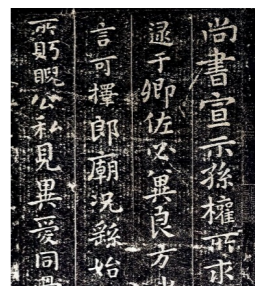 尚書宣示孫權所求
逮于卿佐必異良方
言可擇郎廟況繇始
所眄睨公私見異愛同